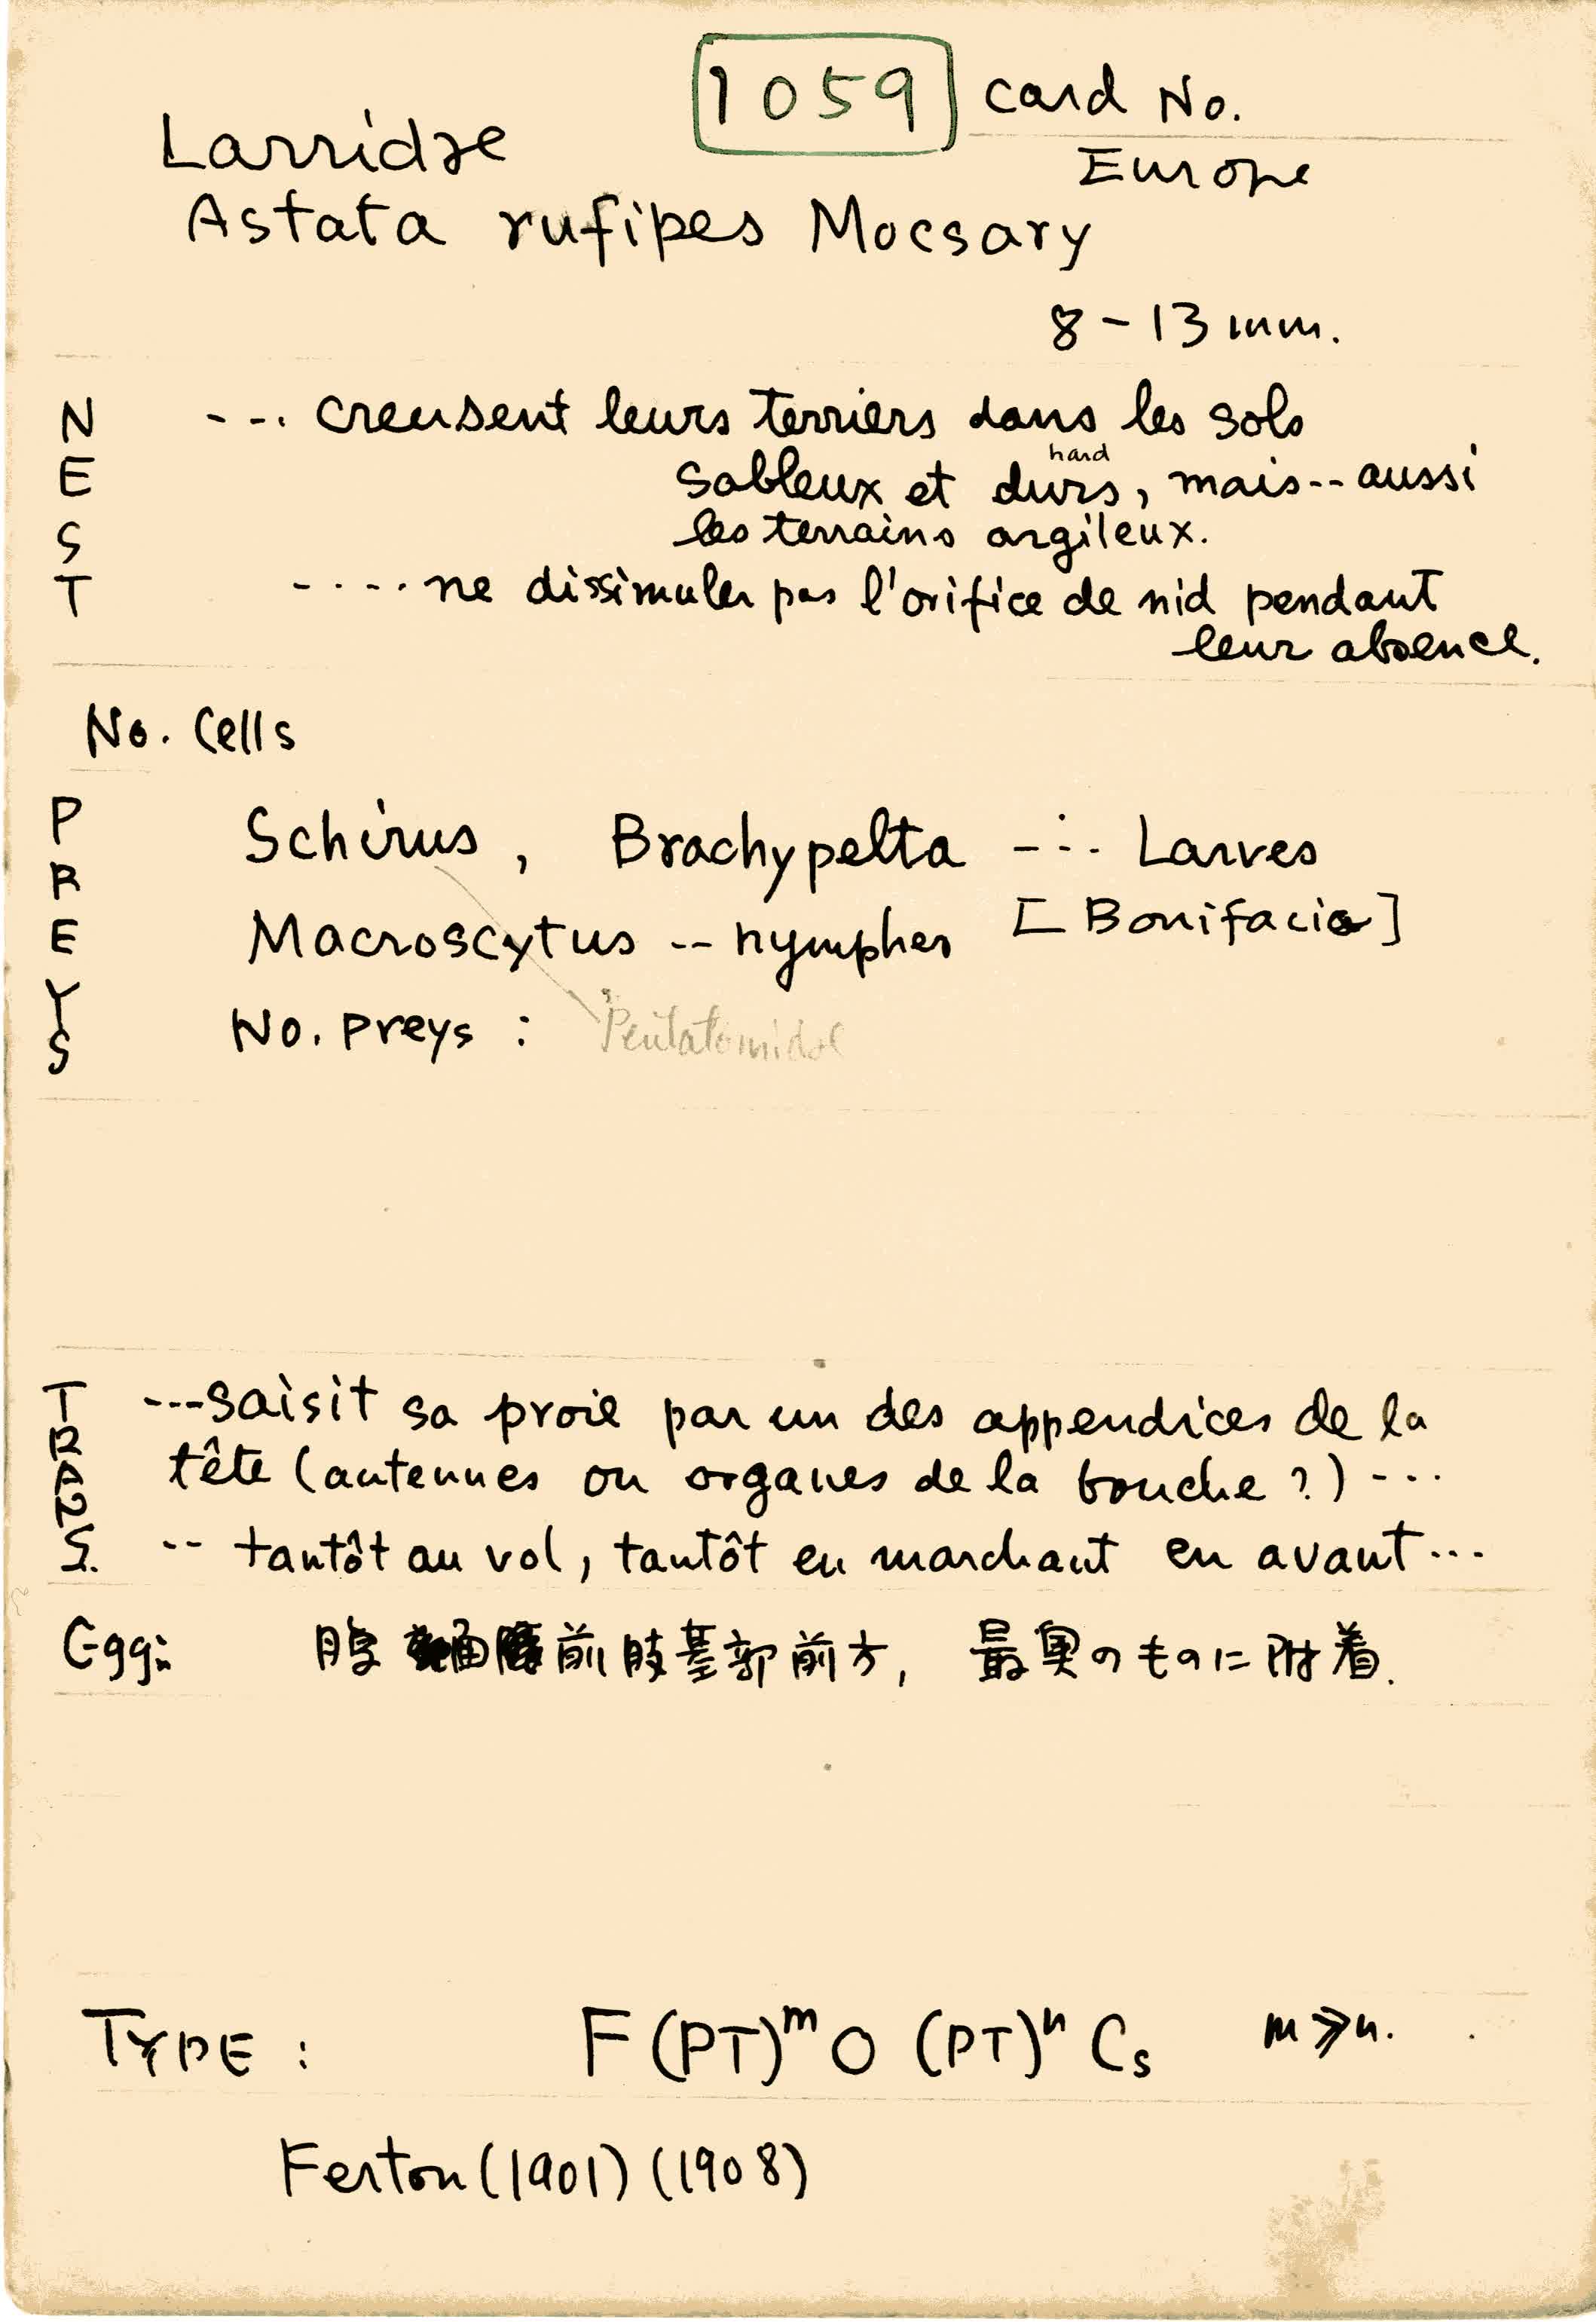 1059 Card No.
Larridae
Europe
Astata rufipes Mocsary
8-13 mm.
NEST --- creusent leurs terriers dans les sols
hard
sableux et durs, mais -- aussi
les terrains argileux.
---- ne dissimuler pas l'orifice de nid pendant
leur absence.
No. Cells
PREYS Schirus, Brachypelta --- Larves
Macroscytus -- nymphes [Bonifacio]
No. preys : Pentatomidae
TRANS. ---saisit sa proie par un des appendices de la
tête (antennes ou organes de la bouche ?) ---
-- tantôt au vol, tantôt en marchant en avant ...
Egg: 腹面前肢基部前方, 最奥のものに附着.
TYPE : F (PT)ᵐ O (PT)ⁿ Cs m≫n.
Ferton (1901) (1908)